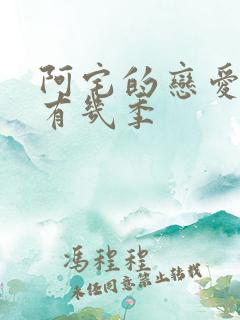 阿宅的戀愛
有幾季
馮程程
未經同意禁止轉載